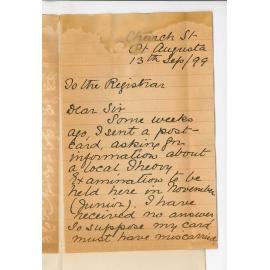 Church St
Pt Augusta
13th Sep/99
To the Registrar
Dear Sir
Some weeks
ago, I sent a post-
card, asking for
information about
a local Theory
Examination to be
held here in November
(Junior). I have
received no answer
so suppose my card
must have miscarried